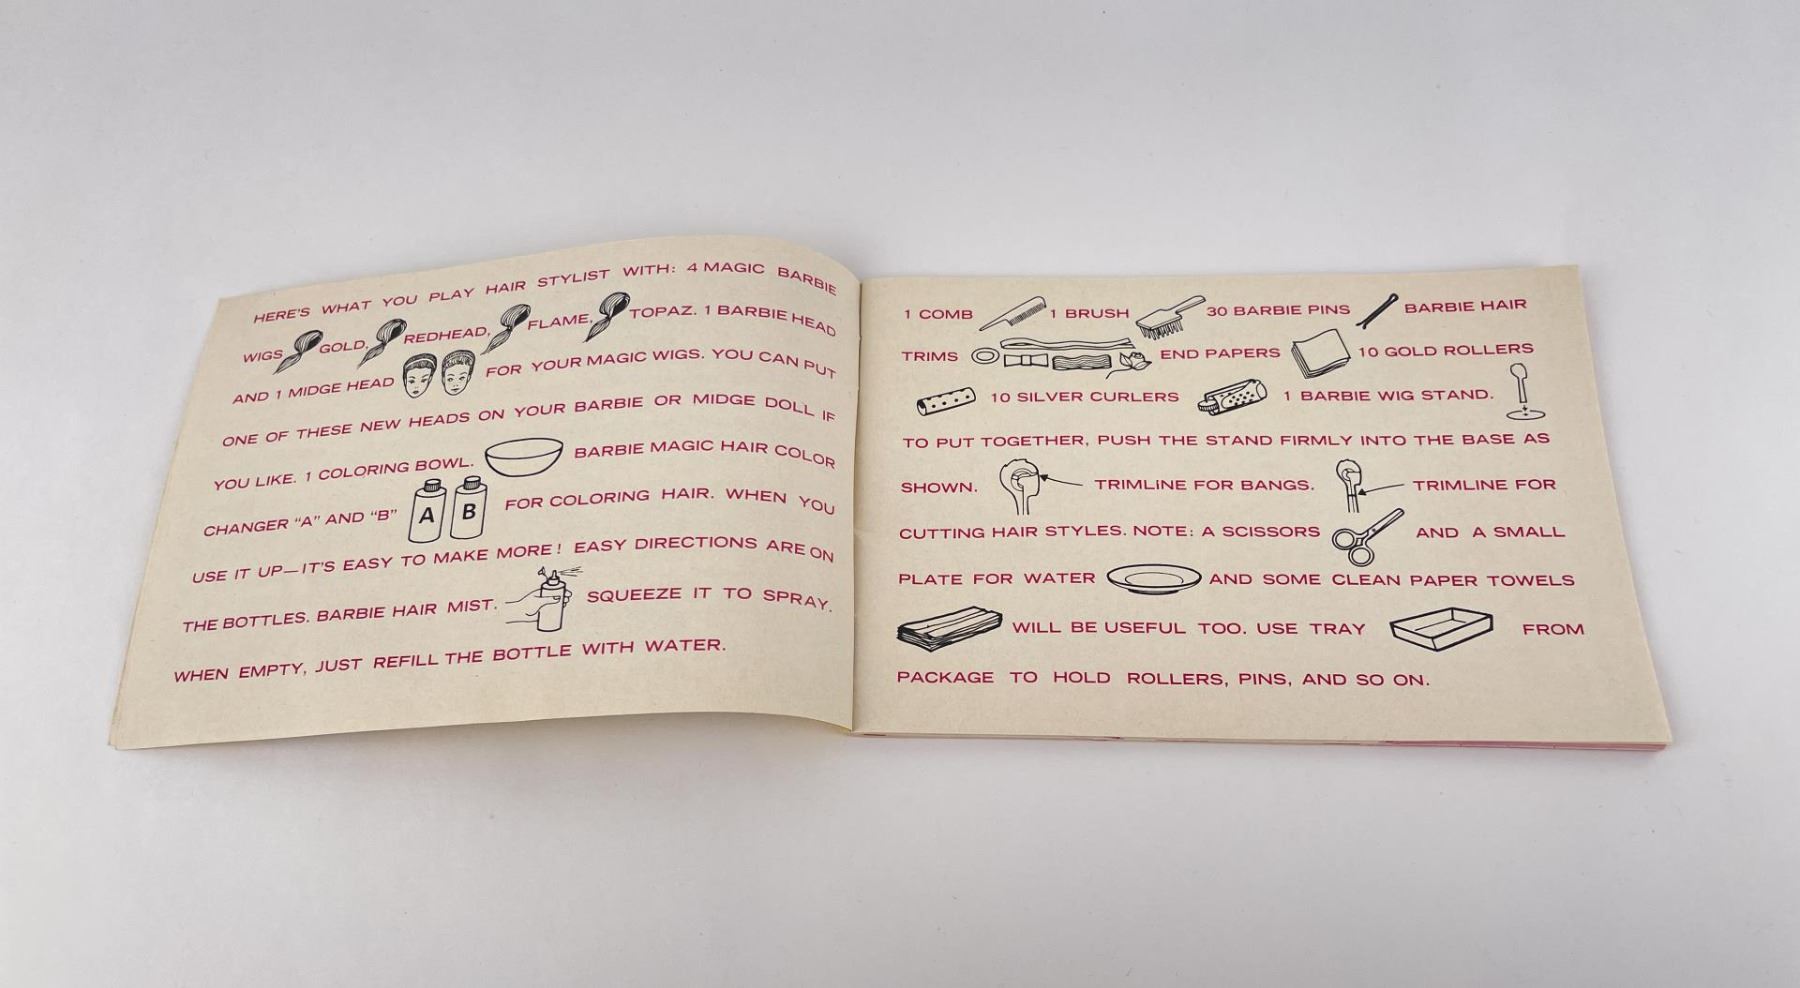 HERE'S WHAT YOU PLAY HAIR STYLIST WITH: 4 MAGIC BARBIE
WIGS GOLD, REDHEAD, FLAME, TOPAZ. 1 BARBIE HEAD
AND 1 MIDGE HEAD FOR YOUR MAGIC WIGS. YOU CAN PUT
ONE OF THESE NEW HEADS ON YOUR BARBIE OR MIDGE DOLL IF
YOU LIKE. 1 COLORING BOWL. BARBIE MAGIC HAIR COLOR
CHANGER "A" AND "B" A B FOR COLORING HAIR. WHEN YOU
USE IT UP—IT'S EASY TO MAKE MORE! EASY DIRECTIONS ARE ON
THE BOTTLES. BARBIE HAIR MIST. SQUEEZE IT TO SPRAY.
WHEN EMPTY, JUST REFILL THE BOTTLE WITH WATER.
1 COMB 1 BRUSH 30 BARBIE PINS BARBIE HAIR
TRIMS END PAPERS 10 GOLD ROLLERS
10 SILVER CURLERS 1 BARBIE WIG STAND.
TO PUT TOGETHER, PUSH THE STAND FIRMLY INTO THE BASE AS
SHOWN. TRIMLINE FOR BANGS. TRIMLINE FOR
CUTTING HAIR STYLES. NOTE: A SCISSORS AND A SMALL
PLATE FOR WATER AND SOME CLEAN PAPER TOWELS
WILL BE USEFUL TOO. USE TRAY FROM
PACKAGE TO HOLD ROLLERS, PINS, AND SO ON.